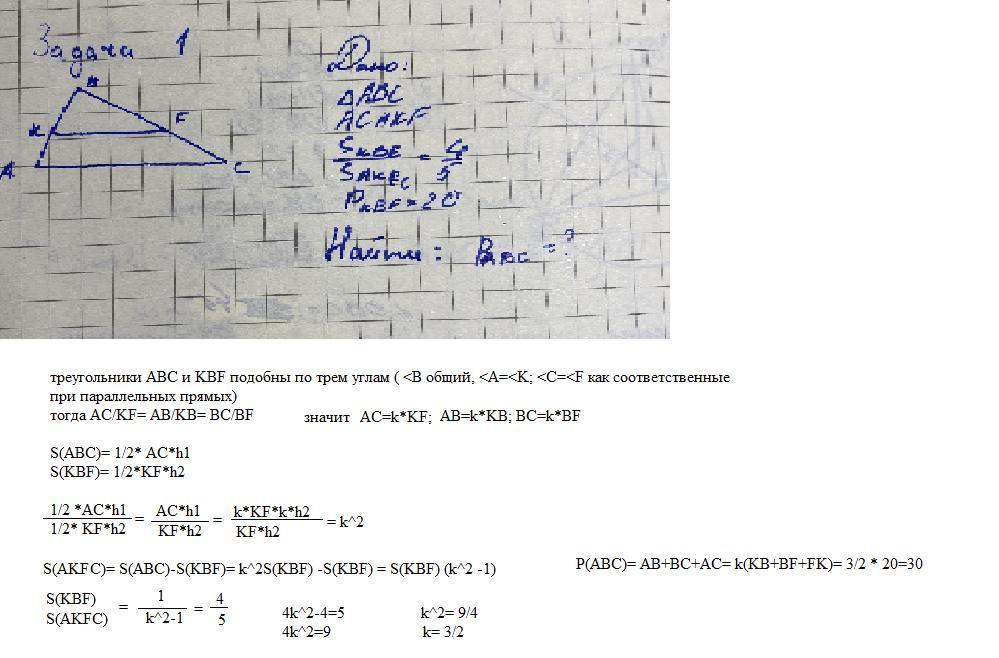 Задача 1
Дано:
B
K
F
A
C
△ABC
AC∦KF
S KBF / S AKFC = 4/5
P KBF = 20
Найти: P ABC = ?
треугольники ABC и KBF подобны по трем углам ( <B общий, <A=<K; <C=<F как соответственные
при параллельных прямых)
тогда AC/KF= AB/KB= BC/BF значит AC=k*KF; AB=k*KB; BC=k*BF
S(ABC)= 1/2* AC*h1
S(KBF)= 1/2*KF*h2
1/2 *AC*h1 / 1/2* KF*h2 = AC*h1 / KF*h2 = k*KF*k*h2 / KF*h2 = k^2
S(AKFC)= S(ABC)-S(KBF)= k^2S(KBF) -S(KBF) = S(KBF) (k^2 -1)
P(ABC)= AB+BC+AC= k(KB+BF+FK)= 3/2 * 20=30
S(KBF) / S(AKFC) = 1 / k^2-1 = 4 / 5
4k^2-4=5 k^2= 9/4
4k^2=9 k= 3/2